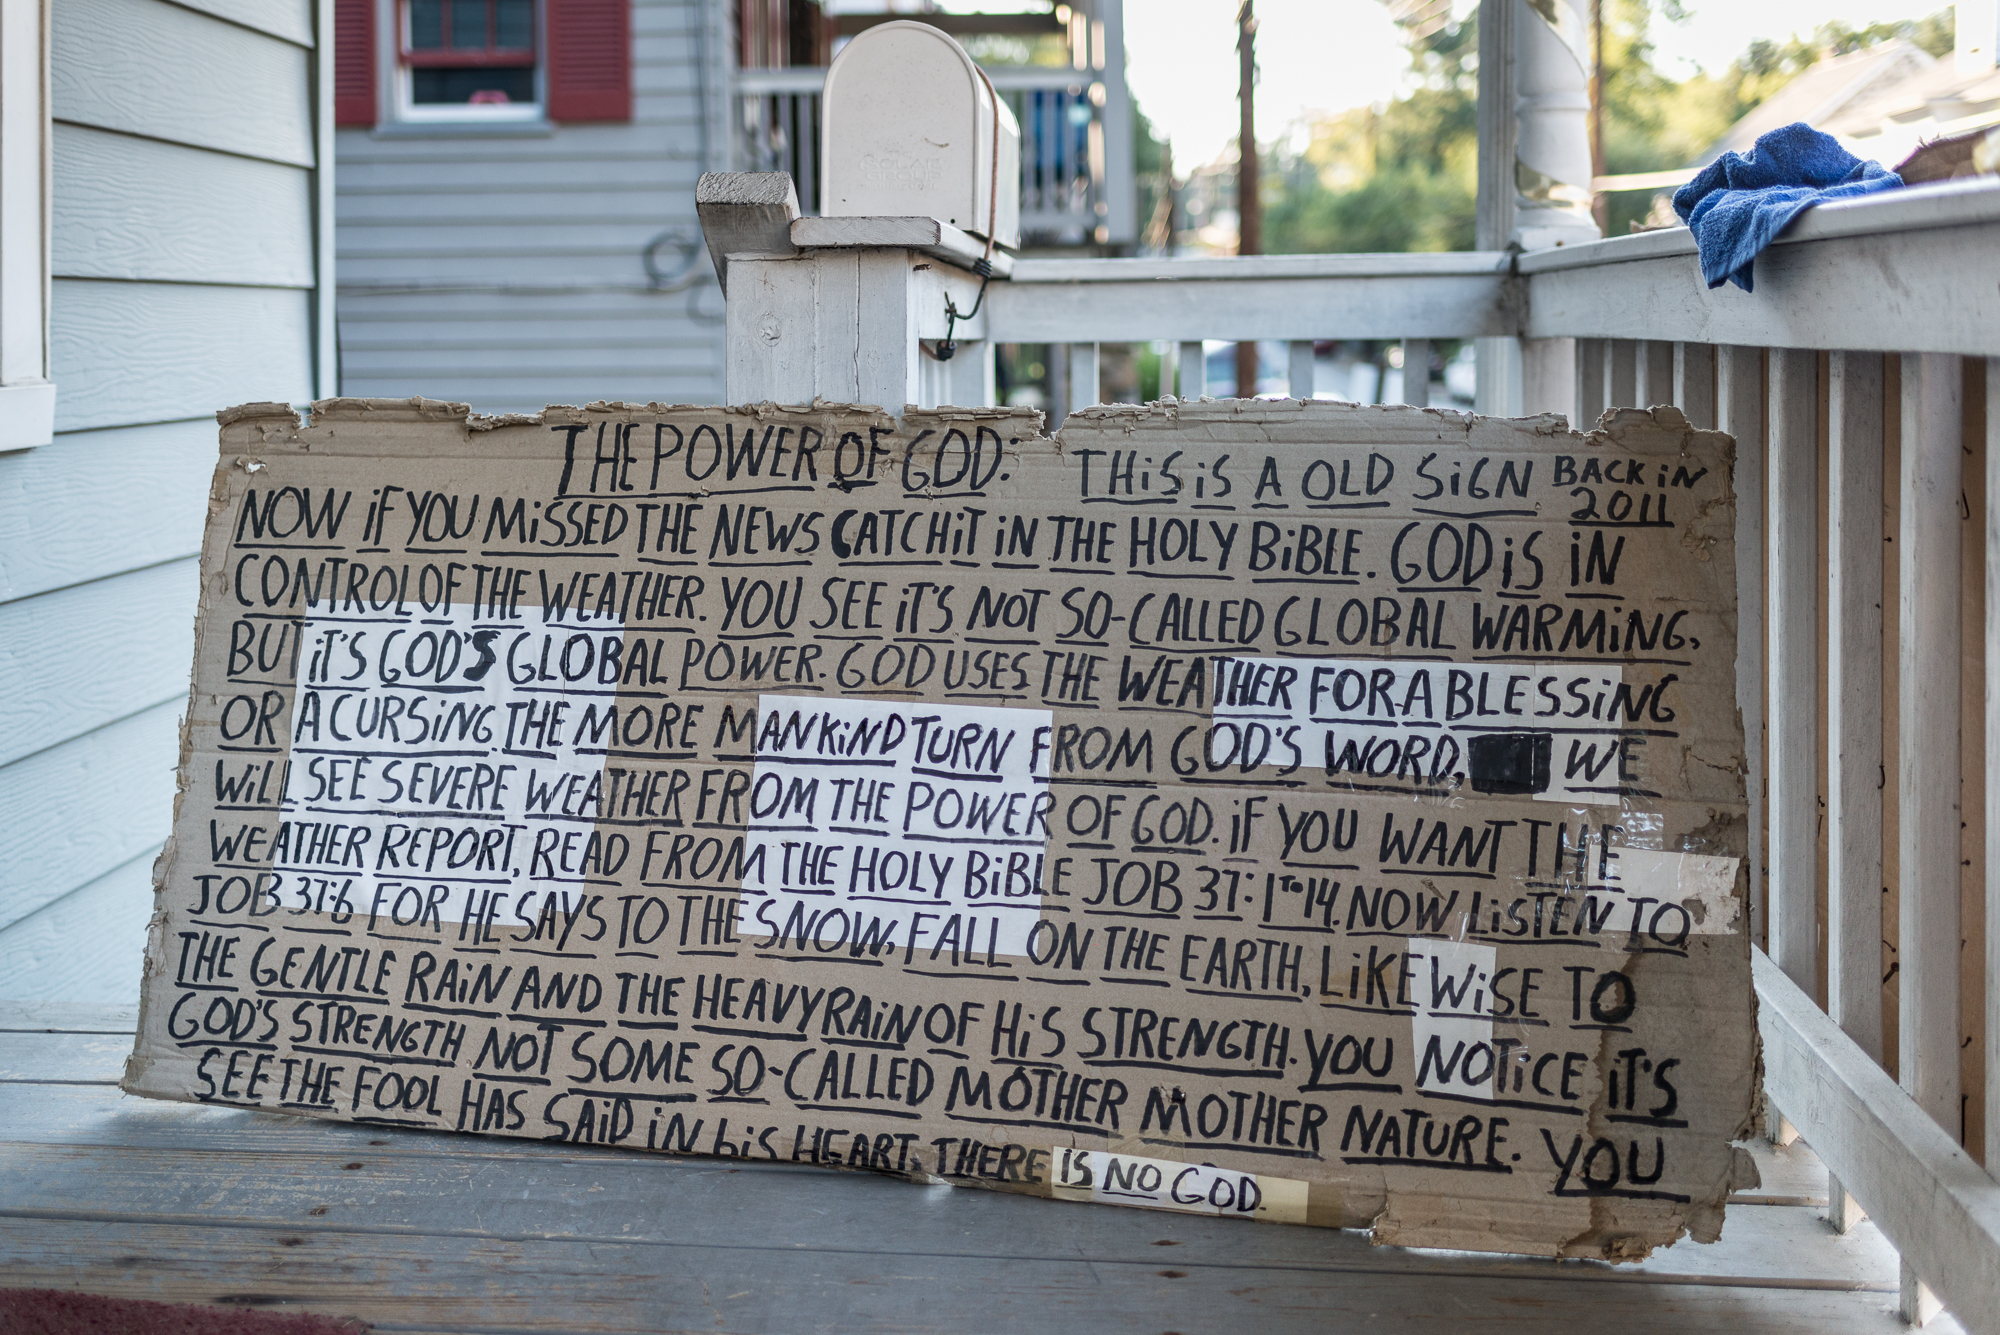 THE POWER OF GOD: THiS iS A OLD SiGN BACK iN 2011
NOW iF YOU MiSSED THE NEWS CATCH iT iN THE HOLY BiBLE. GOD iS iN
CONTROL OF THE WEATHER. YOU SEE iT'S NOT SO-CALLED GLOBAL WARMiNG,
BUT iT'S GOD'S GLOBAL POWER. GOD USES THE WEATHER FOR A BLESSiNG
OR A CURSiNG. THE MORE MANKiND TURN FROM GOD'S WORD, WE
WiLL SEE SEVERE WEATHER FROM THE POWER OF GOD. iF YOU WANT THE
WEATHER REPORT, READ FROM THE HOLY BiBLE JOB 37:1 TO 14. NOW LiSTEN TO
JOB 37:6 FOR HE SAYS TO THE SNOW, FALL ON THE EARTH, LiKEWiSE TO
THE GENTLE RAiN AND THE HEAVY RAiN OF HiS STRENGTH. YOU NOTiCE iT'S
GOD'S STRENGTH NOT SOME SO-CALLED MOTHER MOTHER NATURE. YOU
SEE THE FOOL HAS SAiD iN hiS HEART, THERE IS NO GOD.